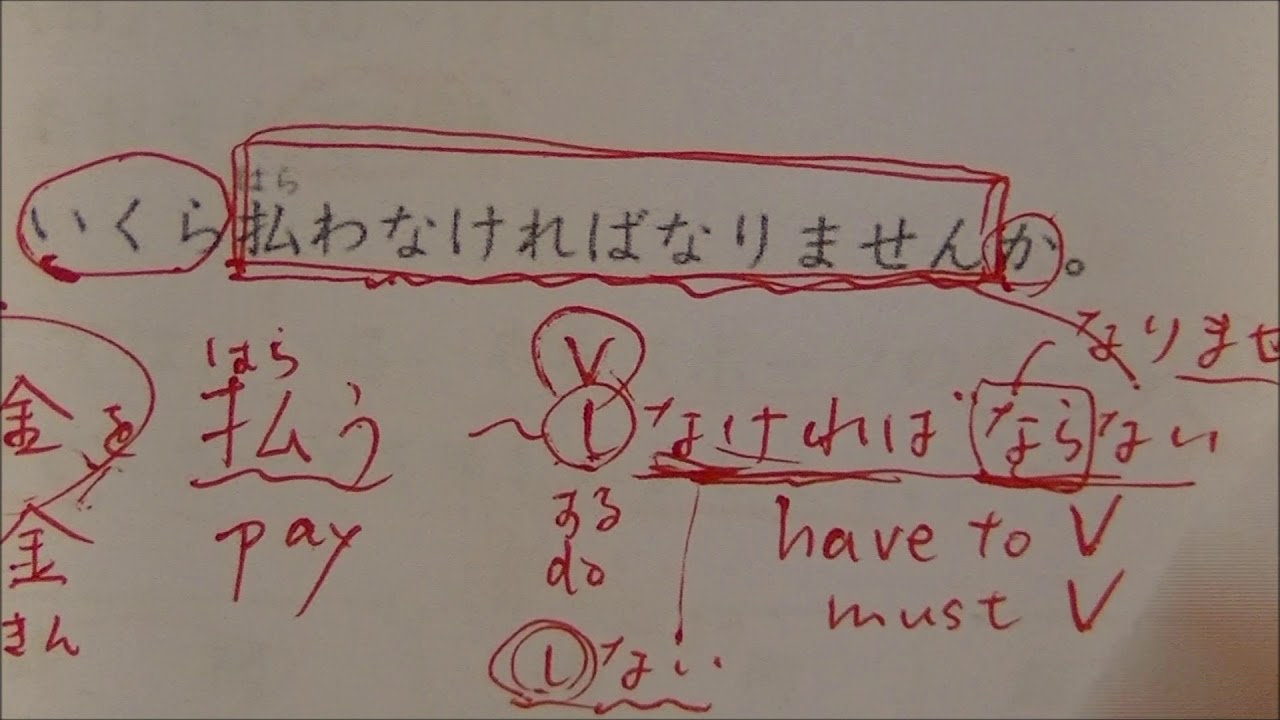 はら
いくら払わなければなりませんか。
なりませ
V
はら
金を 払う ~しなければならない
金 pay する have to V
do must V
きん しない